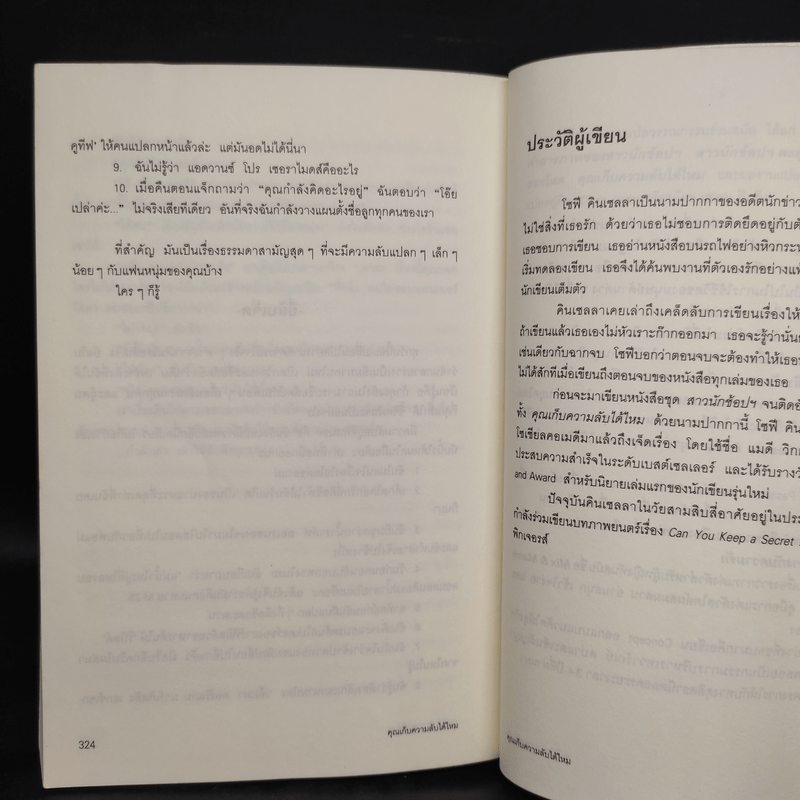 คูทีฟ' ให้คนแปลกหน้าแล้วล่ะ แต่มันอดไม่ได้นี่นา
9. ฉันไม่รู้ว่า แอดวานซ์ โปร เซอราไมดส์คืออะไร
10. เมื่อคืนตอนแจ็กถามว่า “คุณกำลังคิดอะไรอยู่” ฉันตอบว่า “โอ๊ย
เปล่าค่ะ...” ไม่จริงเสียทีเดียว อันที่จริงฉันกำลังวางแผนตั้งชื่อลูกทุกคนของเรา
ที่สำคัญ มันเป็นเรื่องธรรมดาสามัญสุด ๆ ที่จะมีความลับแปลก ๆ เล็ก ๆ
น้อย ๆ กับแฟนหนุ่มของคุณบ้าง
ใคร ๆ ก็รู้
324
คุณเก็บความลับได้ไหม
ประวัติผู้เขียน
โซฟี คินเซลลาเป็นนามปากกาของอดีตนักข่าว
ไม่ใช่สิ่งที่เธอรัก ด้วยว่าเธอไม่ชอบการติดยึดอยู่กับ
เธอชอบการเขียน เธออ่านหนังสือบนรถไฟอย่างหิวกระ
เริ่มทดลองเขียน เธอจึงได้ค้นพบงานที่ตัวเองรักอย่าง
นักเขียนเต็มตัว
คินเซลลาเคยเล่าถึงเคล็ดลับการเขียนเรื่องให้
ถ้าเขียนแล้วเธอเองไม่หัวเราะก๊ากออกมา เธอจะรู้ว่านั่น
เช่นเดียวกับฉากจบ โซฟีบอกว่าตอนจบจะต้องทำให้เธอ
ไม่ได้สักทีเมื่อเขียนถึงตอนจบของหนังสือทุกเล่มของเธอ
ก่อนจะมาเขียนหนังสือชุด สาวนักช้อปฯ จนติด
ทั้ง คุณเก็บความลับได้ไหม ด้วยนามปากกานี้ โซฟี คิน
โซเชียลคอเมดีมาแล้วถึงเจ็ดเรื่อง โดยใช้ชื่อ แมดี วิก
ประสบความสำเร็จในระดับเบสต์เซลเลอร์ และได้รับราง
and Award สำหรับนิยายเล่มแรกของนักเขียนรุ่นใหม่
ปัจจุบันคินเซลลาในวัยสามสิบสี่อาศัยอยู่ในประ
กำลังร่วมเขียนบทภาพยนตร์เรื่อง Can You Keep a Secret
พิกเจอรส์
คุณเก็บความลับได้ไหม